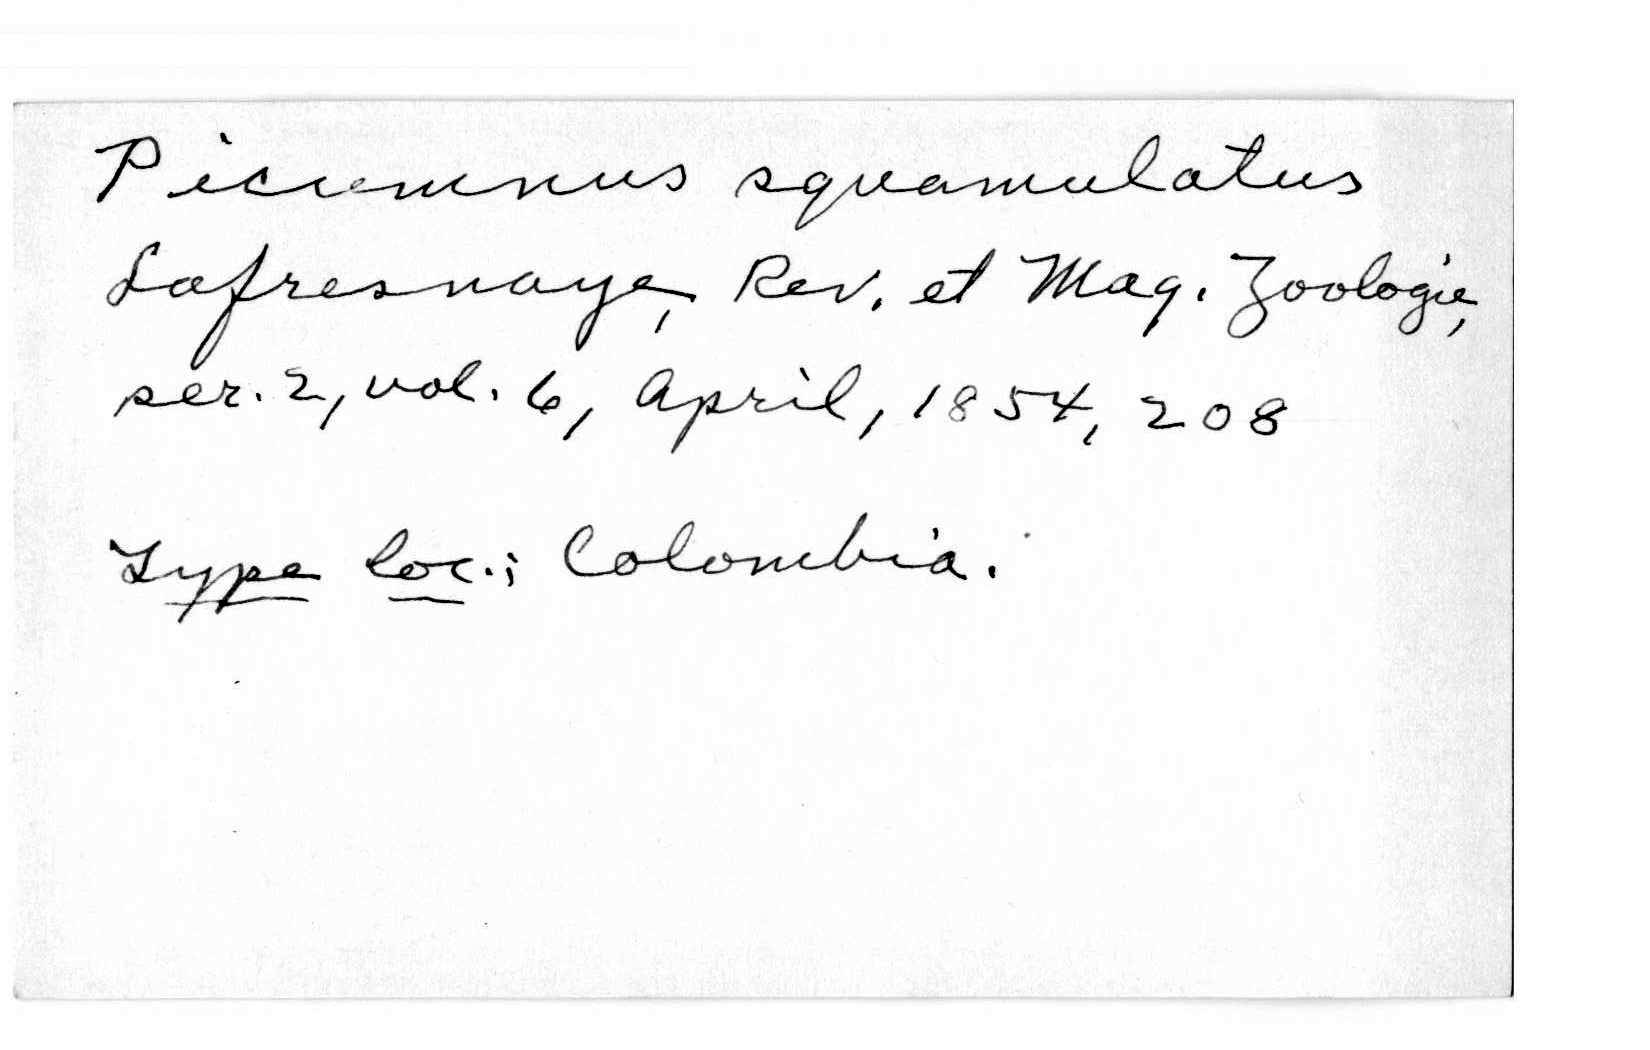 Picumnus squamulatus
Lafresnaye, Rev. et Mag. Zoologie,
ser. 2, vol. 6, April, 1854, 208
Type loc.; Colombia.